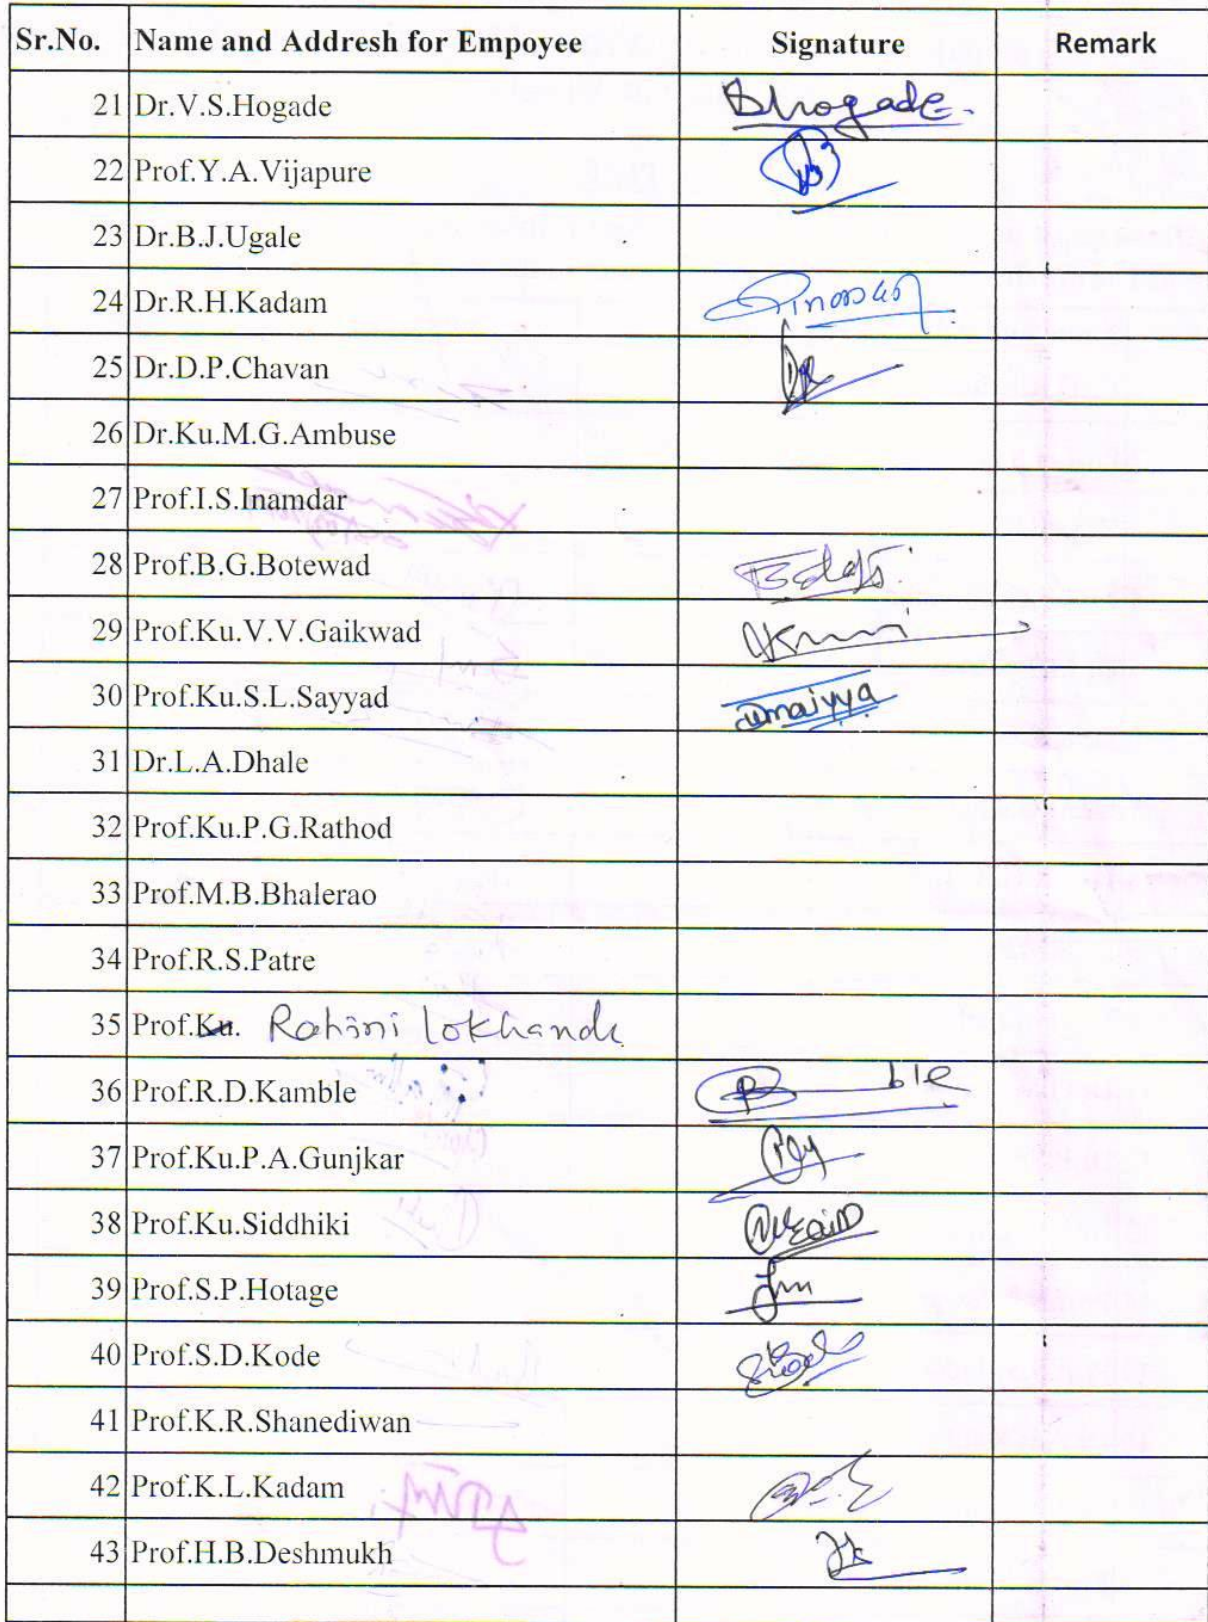 Sr.No. Name and Addresh for Empoyee Signature Remark
21 Dr.V.S.Hogade Bhogade.
22 Prof.Y.A.Vijapure
23 Dr.B.J.Ugale
24 Dr.R.H.Kadam
25 Dr.D.P.Chavan
26 Dr.Ku.M.G.Ambuse
27 Prof.I.S.Inamdar
28 Prof.B.G.Botewad
29 Prof.Ku.V.V.Gaikwad
30 Prof.Ku.S.L.Sayyad
31 Dr.L.A.Dhale
32 Prof.Ku.P.G.Rathod
33 Prof.M.B.Bhalerao
34 Prof.R.S.Patre
35 Prof.Ku. Rohini lokhande
36 Prof.R.D.Kamble
37 Prof.Ku.P.A.Gunjkar
38 Prof.Ku.Siddhiki
39 Prof.S.P.Hotage
40 Prof.S.D.Kode
41 Prof.K.R.Shanediwan
42 Prof.K.L.Kadam
43 Prof.H.B.Deshmukh